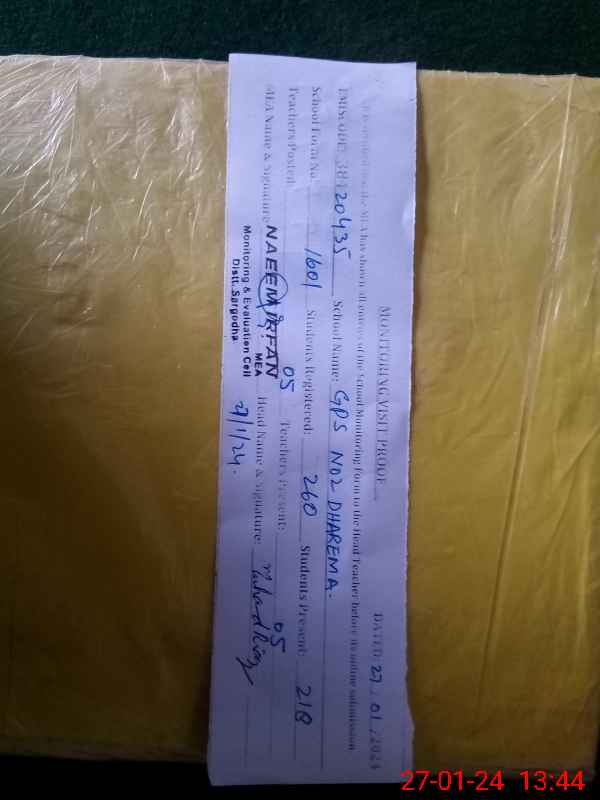 MONITORING VISIT PROOF
DATED: 27 / 01 / 2024
It is certified that the MEA has shown all entries of the School Monitoring Form to the Head Teacher before its online submission.
EMIS CODE: 38420435 School Name: GPS NO2 DHAREMA.
School Form No. 1601 Students Registered: 260 Students Present: 218
Teachers Posted: 05 Teachers Present: 05
MEA Name & Signature: NAEEM IRFAN Head Name & Signature:
MEA
Monitoring & Evaluation Cell
Distt. Sargodha
27/1/24.
27-01-24 13:44